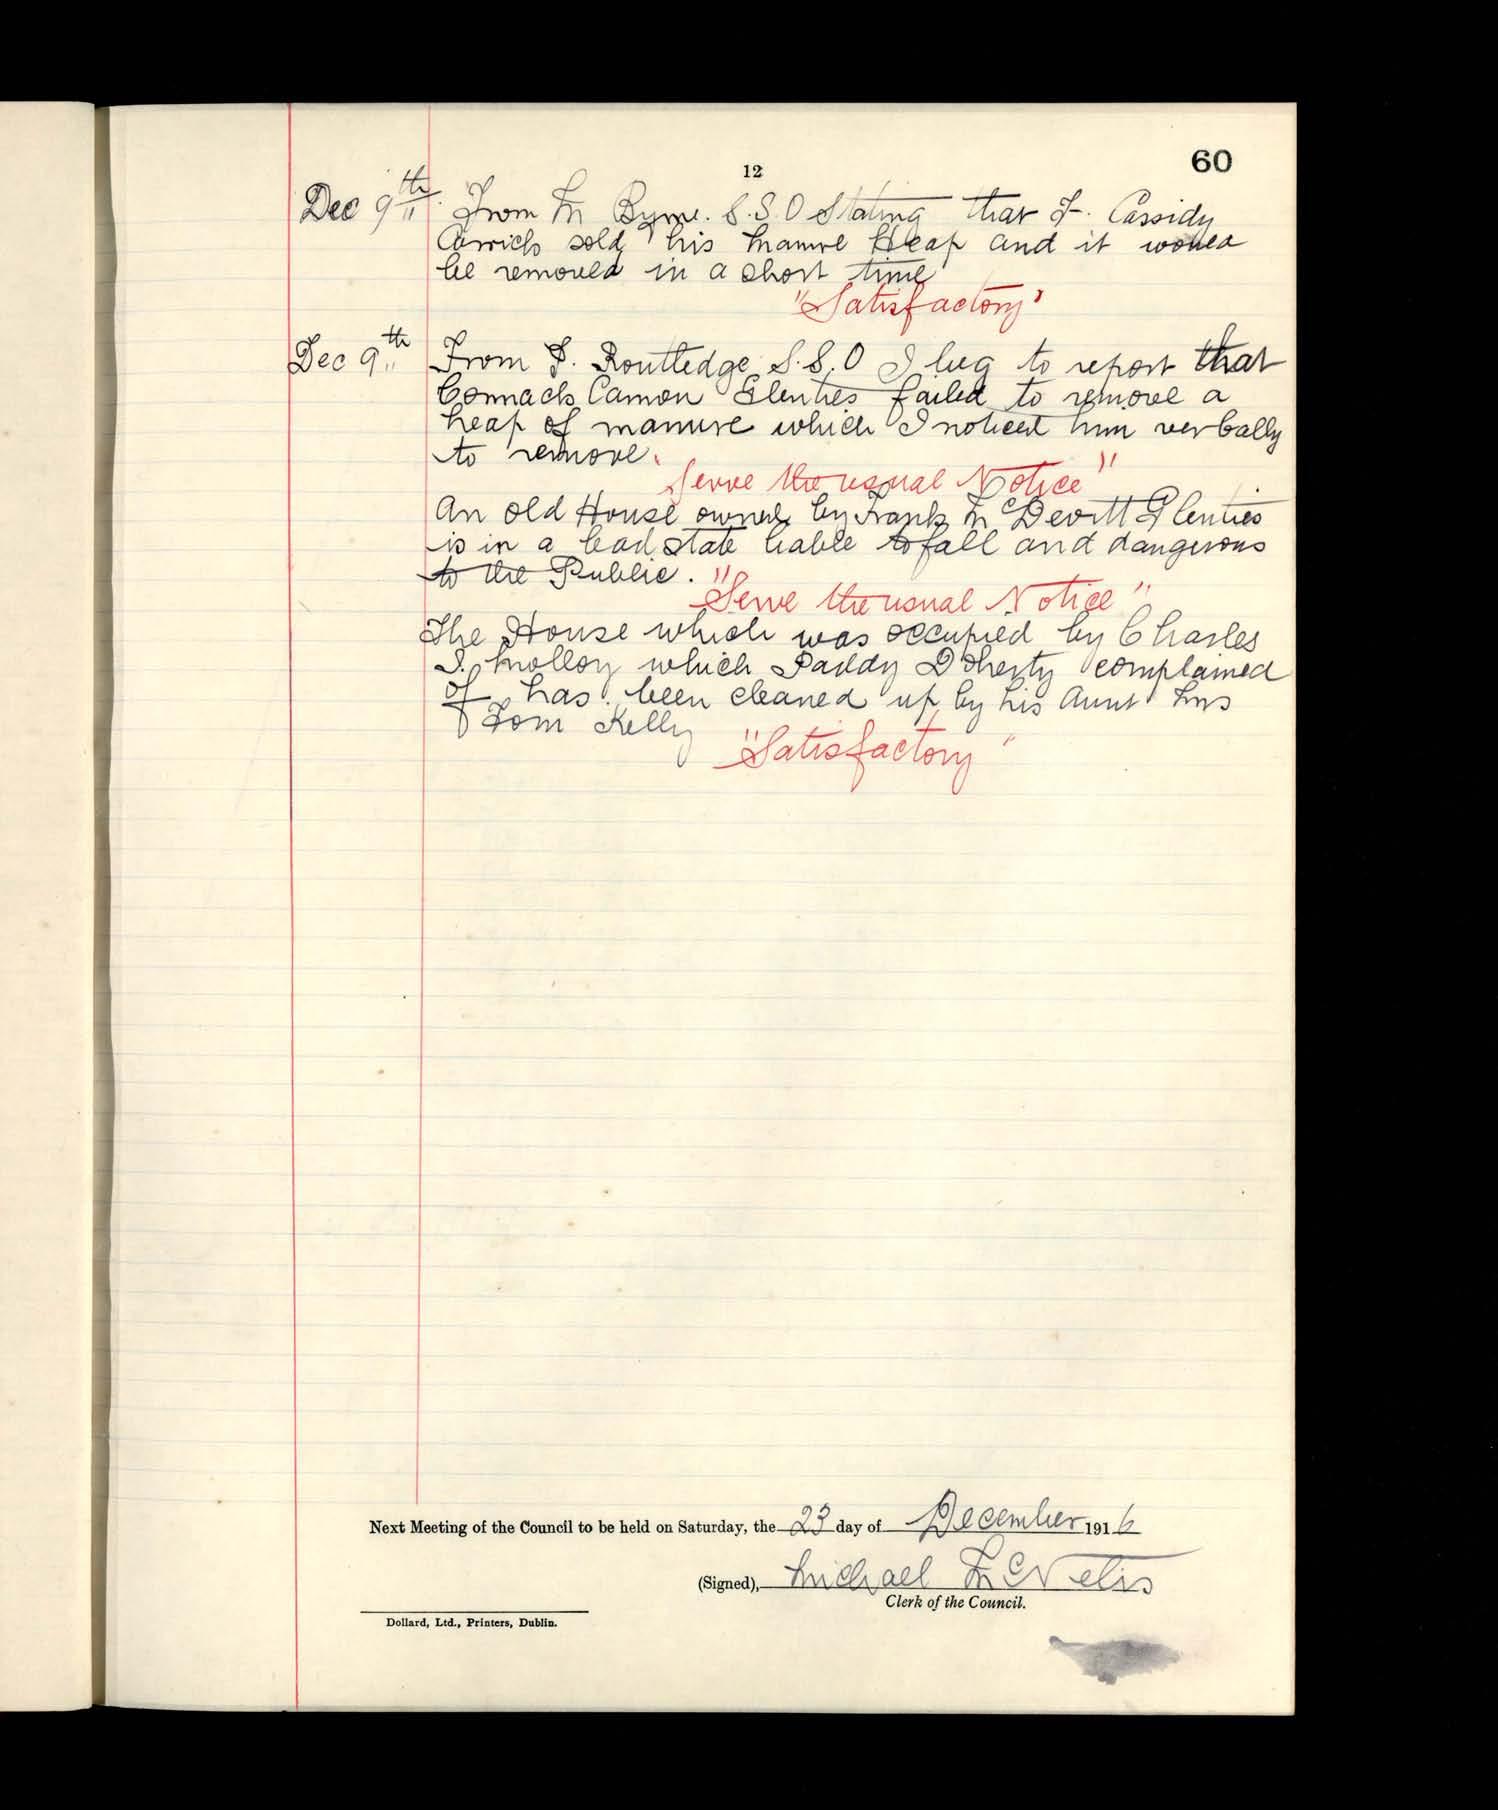 12
60
Dec 9th From M Byrne. S.S.O Stating that F. Cassidy
Carrick sold his manure Heap and it would
be removed in a short time
"Satisfactory"
Dec 9th From F. Routledge S.S.O I beg to report that
Connack Camon Glenties failed to remove a
heap of manure which I noticed him verbally
to remove.
"Serve the usual Notice"
An old House owned by Frank McDevitt Glenties
is in a bad state liable to fall and dangerous
to the Public.
"Serve the usual Notice"
The House which was occupied by Charles
J. Molloy which Paddy Doherty complained
of has been cleaned up by his Aunt Mrs
Tom Kelly
"Satisfactory"
Next Meeting of the Council to be held on Saturday, the 23 day of December 1916
(Signed), Michael McNelis
Clerk of the Council.
Dollard, Ltd., Printers, Dublin.